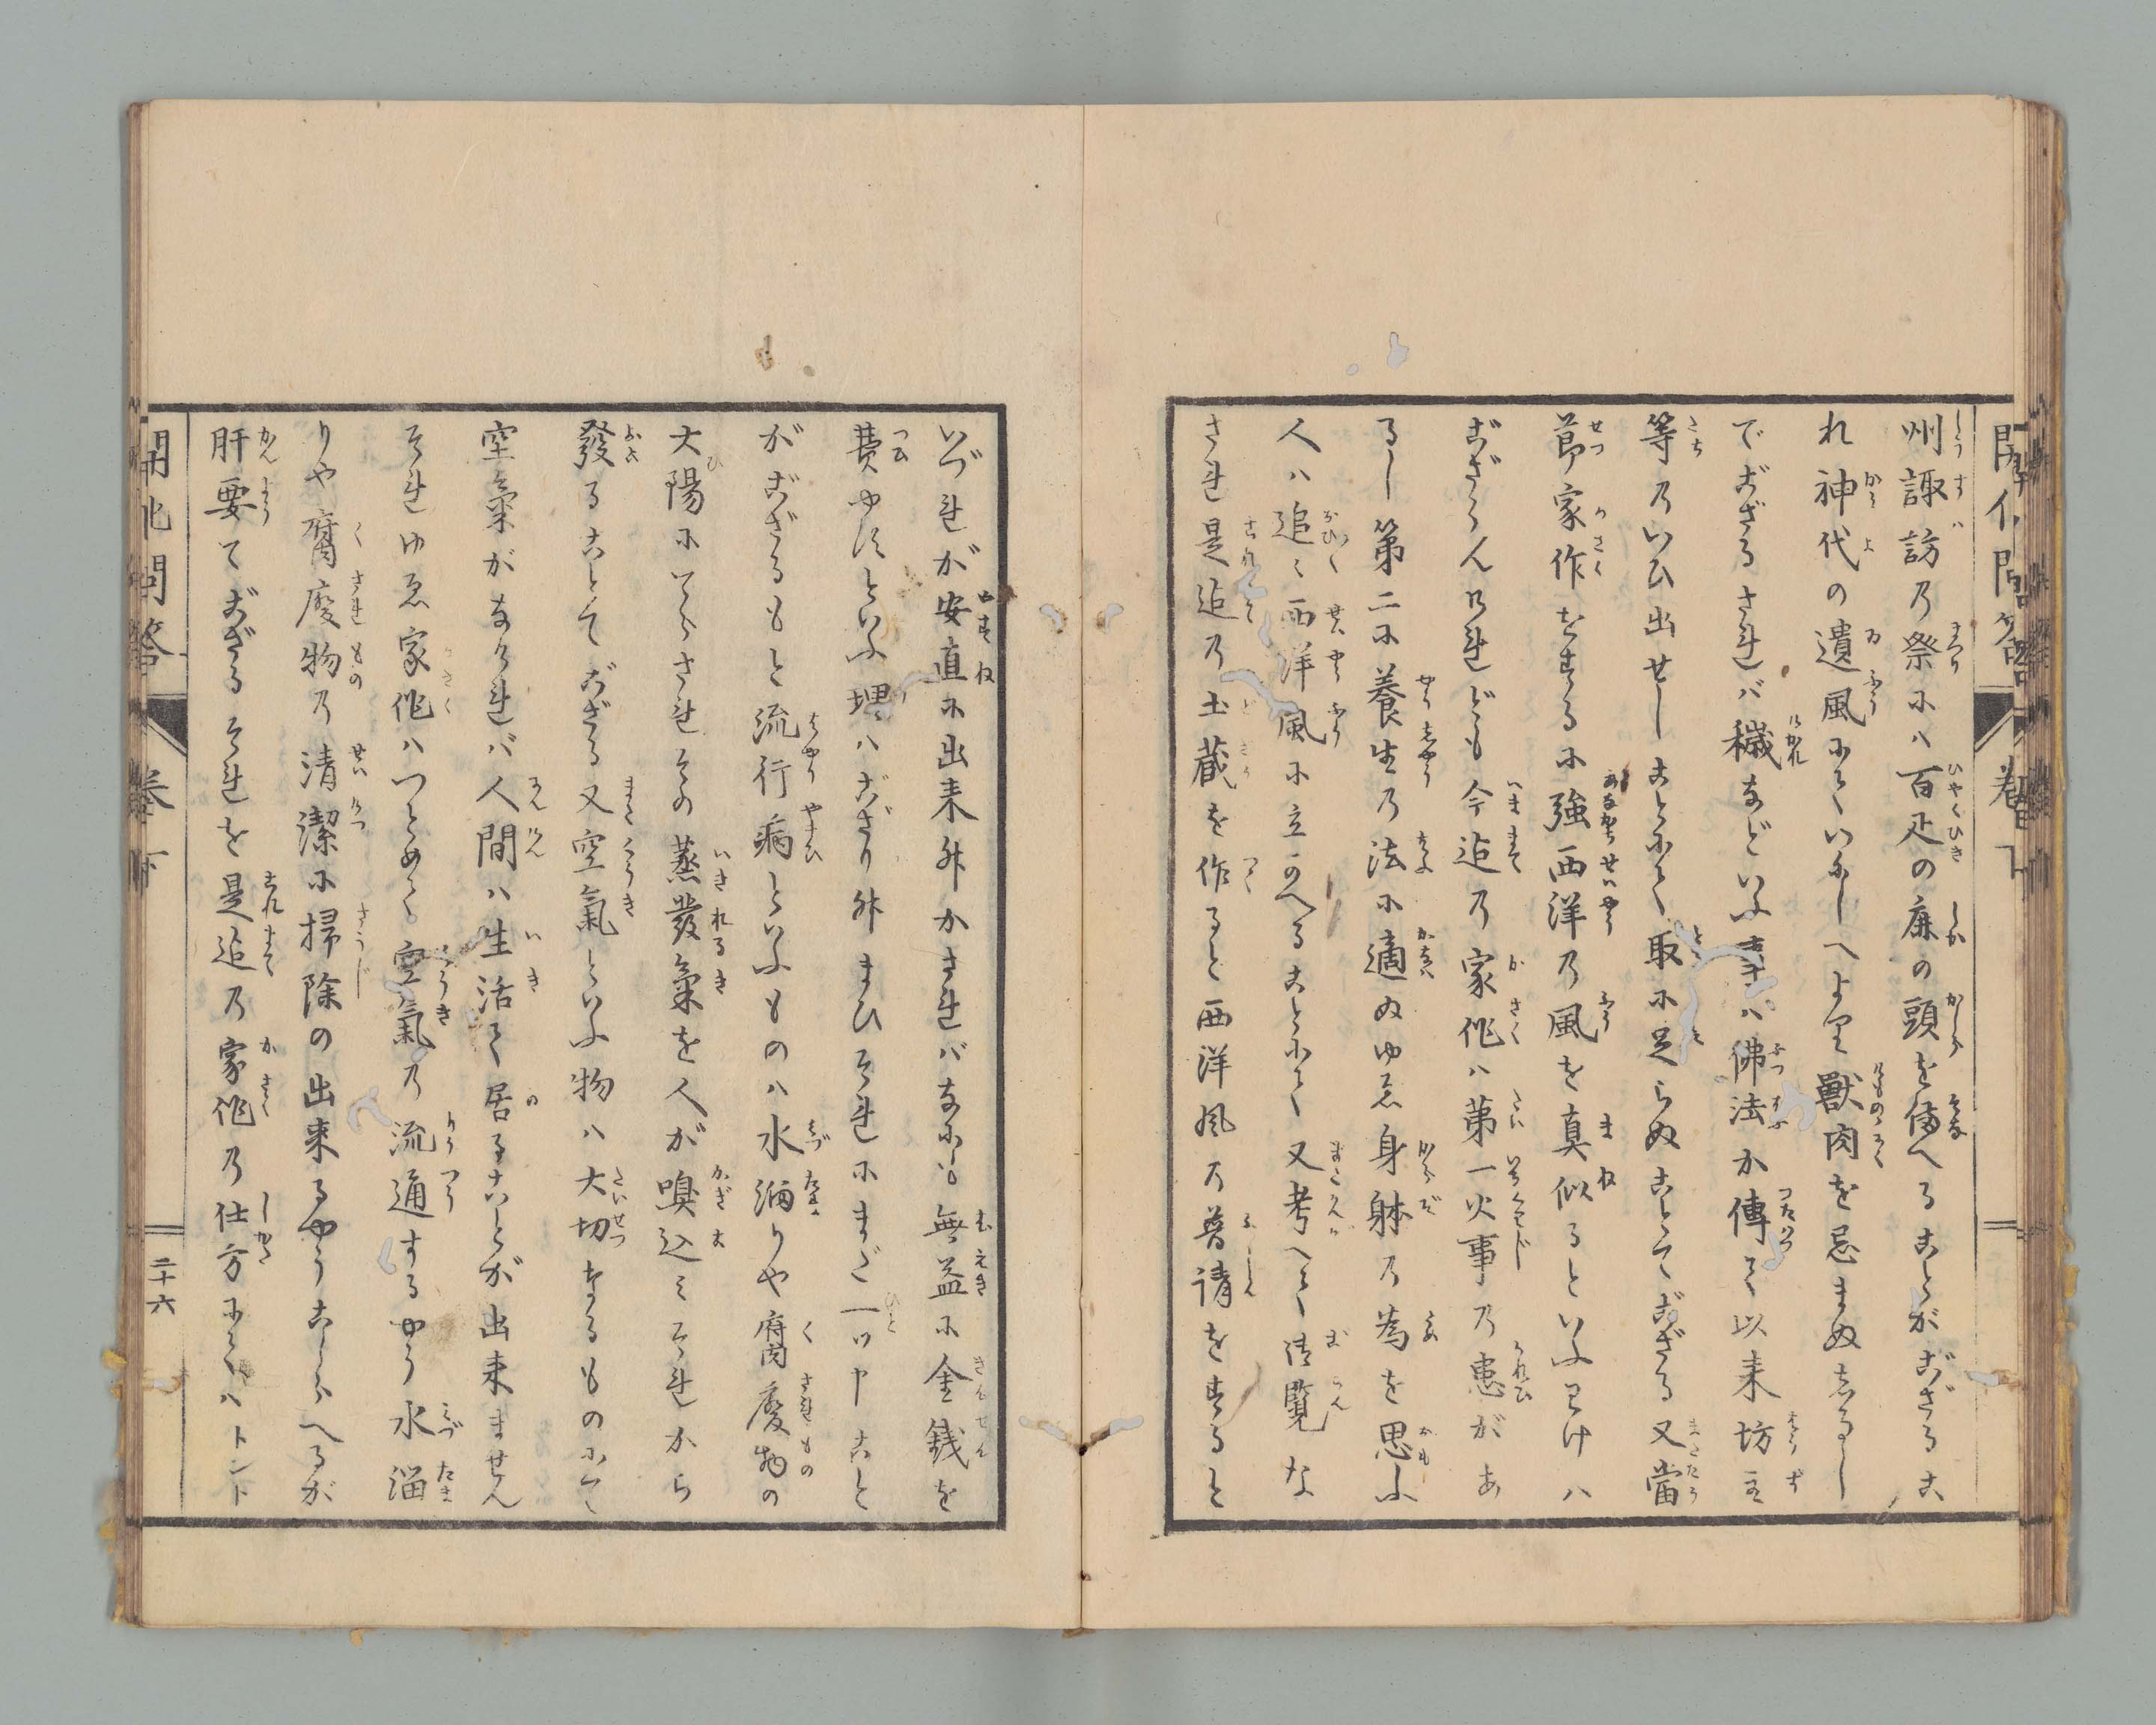 州諏訪乃祭にハ百疋の鹿の頭を備へることがござるこ
れ神代の遺風にていにしへより獣肉を忌まぬしるし
でござるされバ穢などいふ事ハ佛法か傳て以来坊主
等乃いひ出せしことにて取に足らぬことでござる又當
節家作をするに強西洋乃風を真似るといふわけハ
ござらんけれども今迄乃家作ハ第一火事乃患があ
るし第二に養生乃法に適ぬゆゑ身躰乃為を思ふ
人ハ追々西洋風に立かへることにて又考へて御覧な
され是迄乃土蔵を作ると西洋風乃普請をすると
いづれが安直に出来舛かされバなにも無益に金銭を
費やすといふ理ハござり舛まひそれにまだ一ツ申こと
がござるもと流行病といふものハ水溜りや腐廢物の
大陽にてらされその蒸發氣を人が嗅込ミそれから
發ることでござる又空氣といふ物ハ大切なるものにて
空氣がなけれバ人間ハ生活て居ることが出来ません
それゆゑ家作ハつとめて空氣乃流通するやう水溜
りや腐廢物乃清潔に掃除の出来るやうこしらへるが
肝要でござるそれを是迄乃家作乃仕方にてハトント
開化問答
巻下
二十六